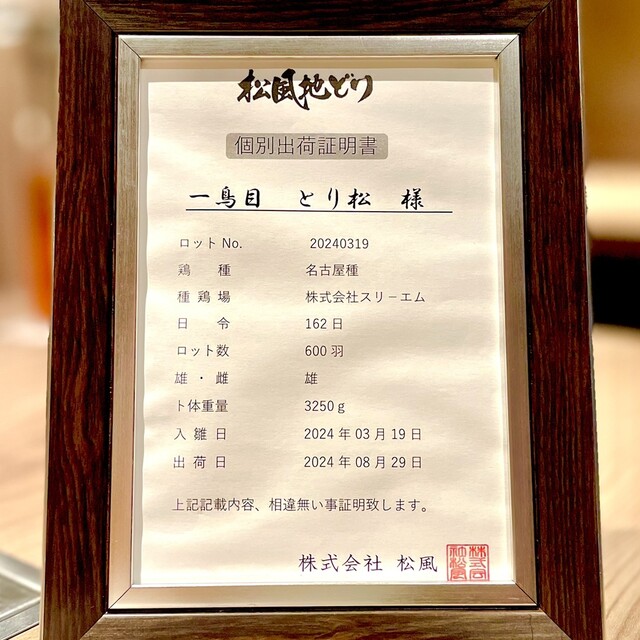 松風地どり
個別出荷証明書
一鳥目 とり松 様
ロット No. 20240319
鶏 種 名古屋種
種 鶏 場 株式会社スリーエム
日 令 162 日
ロット数 600 羽
雄 ・ 雌 雄
ト体重量 3250ｇ
入 雛 日 2024 年 03 月 19 日
出 荷 日 2024 年 08 月 29 日
上記記載内容、相違無い事証明致します。
株式会社 松風